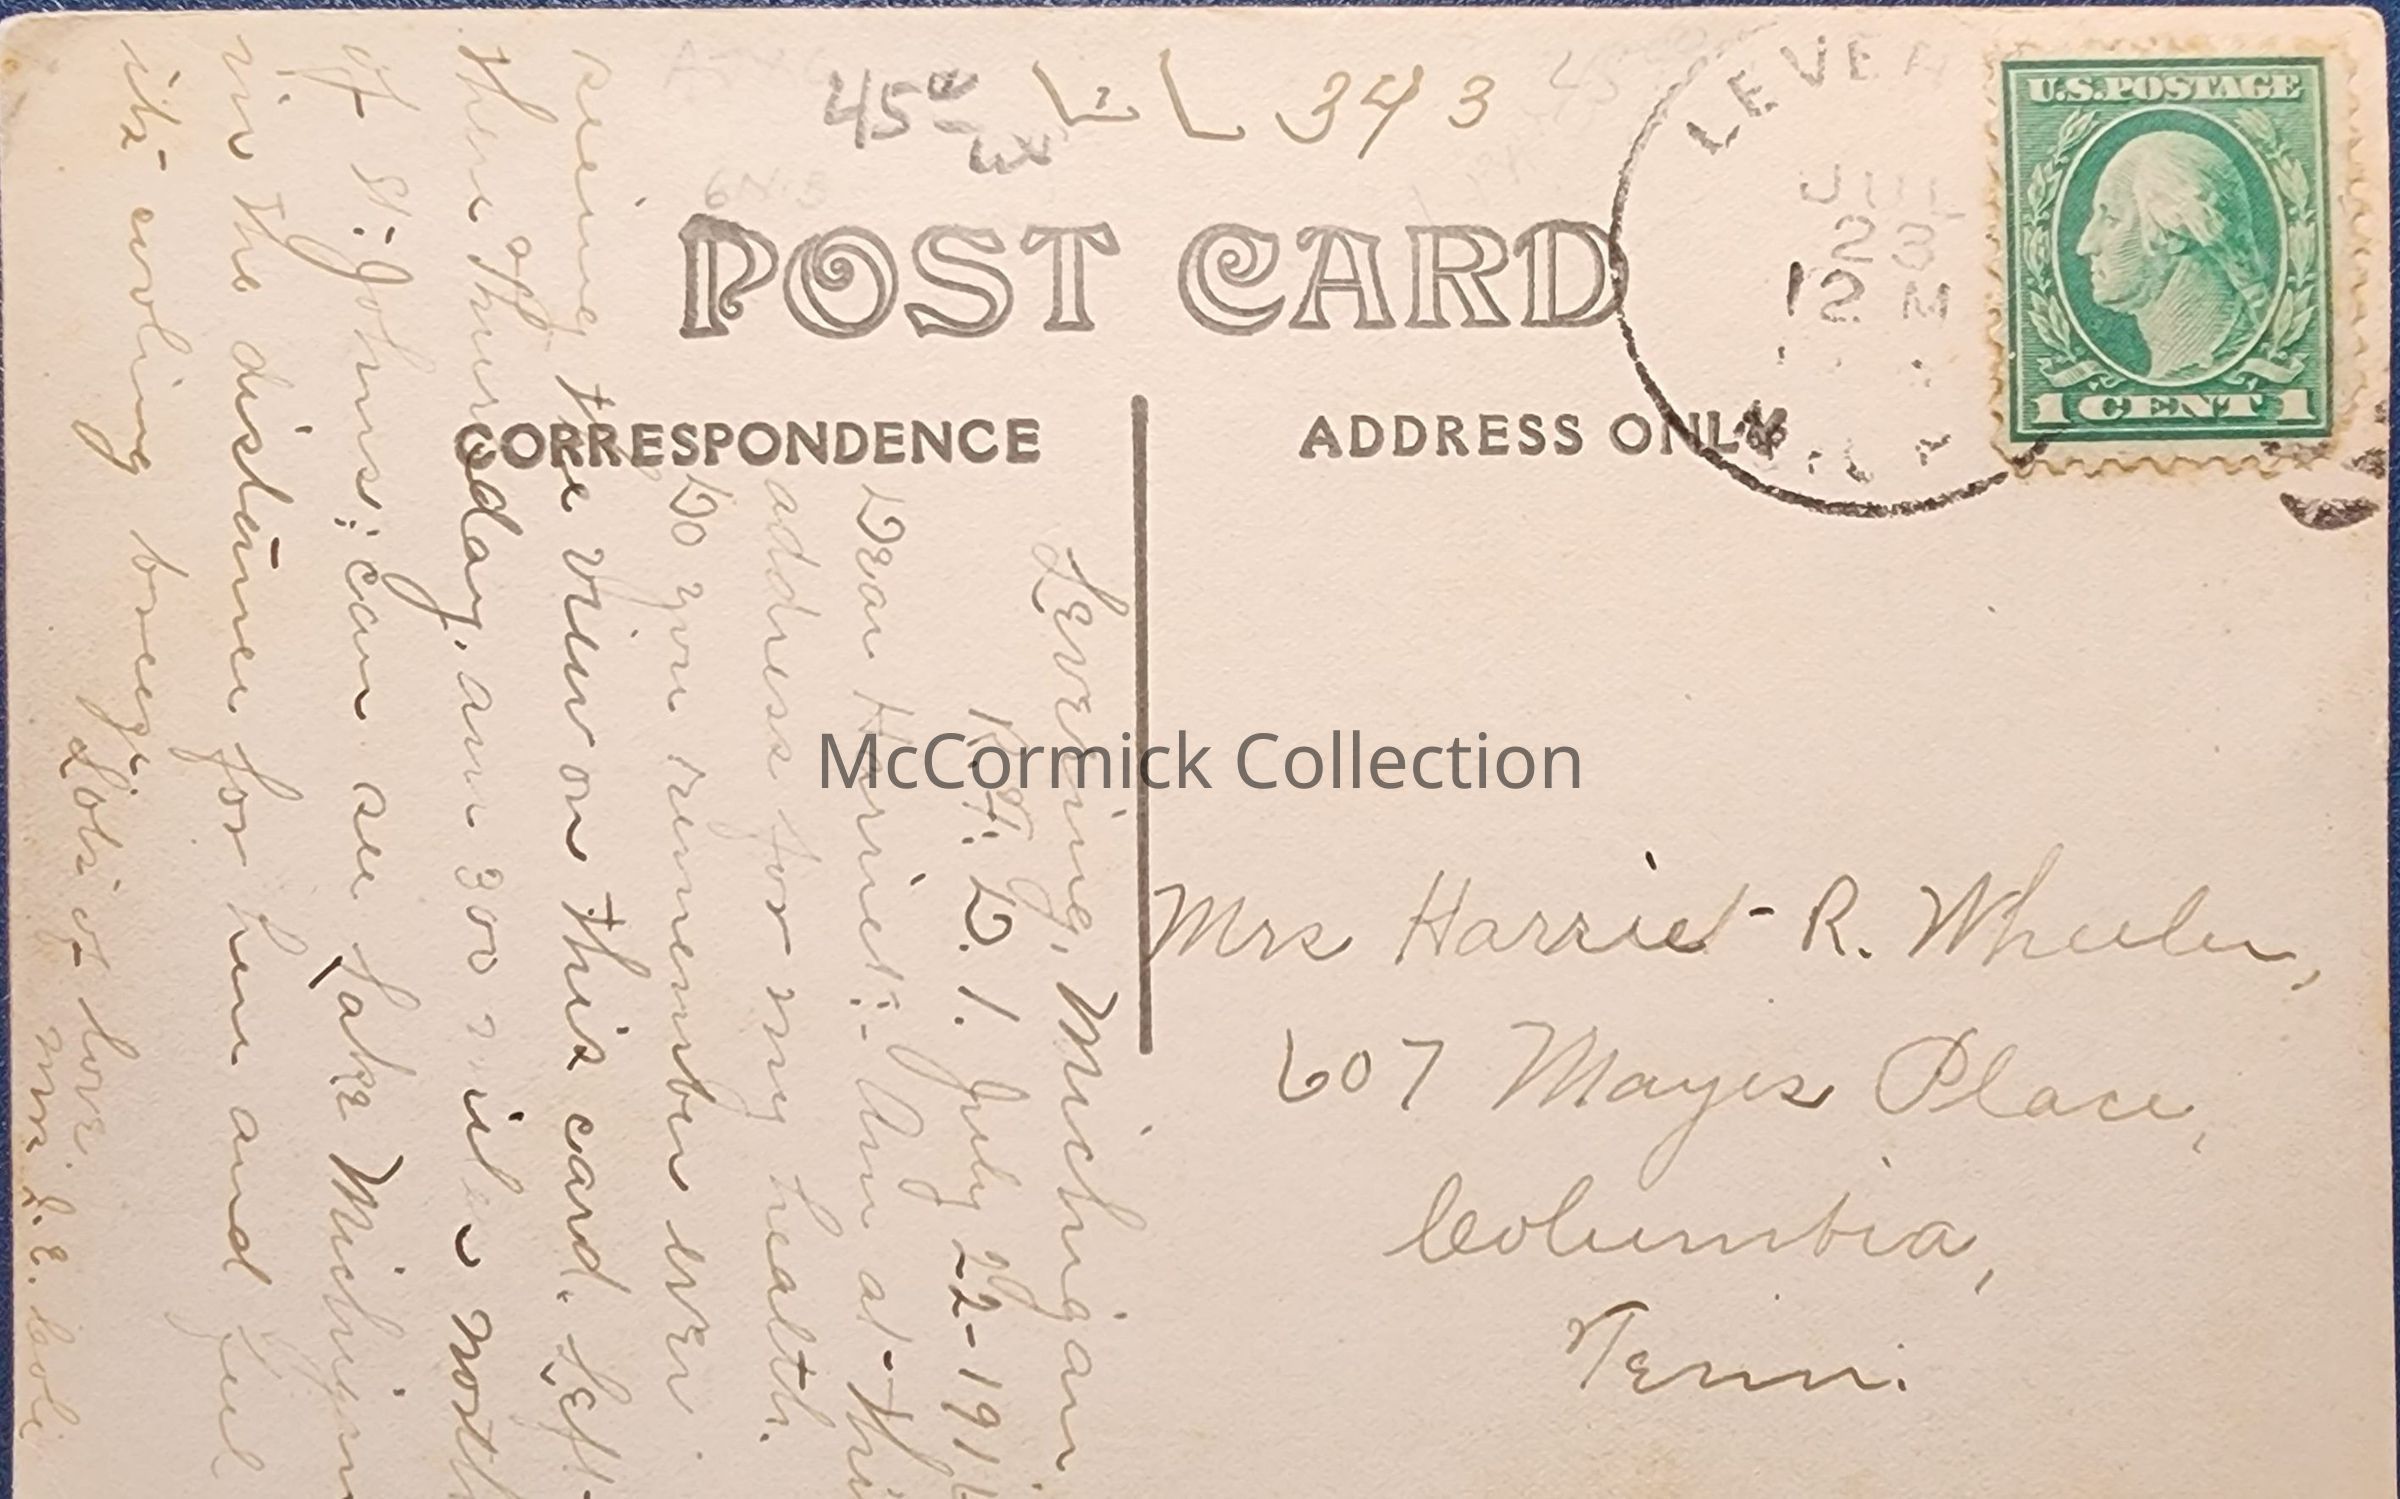 45 LL 343
LEVER
JUL
23
12 M
U.S. POSTAGE
1 CENT 1
POST CARD
CORRESPONDENCE
ADDRESS ONLY
McCormick Collection
Mrs Harriet R. Wheeler,
607 Mayes Place,
Columbia,
Tenn.
Levering, Michigan
R.F.D. 1. July 22-191
Dear Harriet:- Am at this
address for my health.
Do you remember ever
seeing the view on this card. Left
there Thursday, am 300 miles north
of St. Johns; can see Lake Michigan
in the distance for here and feel
its cooling breeze
Lots of love.